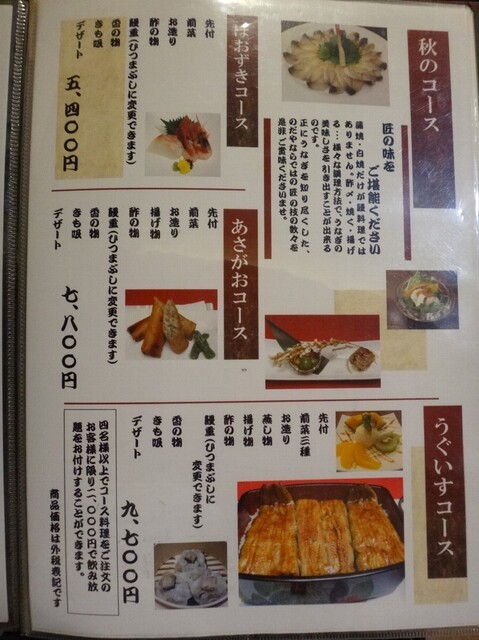 秋のコース
匠の味を
ご堪能ください
蒲焼・白焼だけが鰻料理では
ありません。酢〆・焼く・揚げ
る…様々な調理方法で、うなぎの
美味しさを引き出すことが出来る
のです。
正にうなぎを知り尽くした、
のだやならではの匠の技の数々を
是非ご賞味くださいませ。
ほおずきコース
先付
前菜
お造り
酢の物
鰻重(ひつまぶしに変更できます)
香の物
きも吸
デザート
五、四〇〇円
あさがおコース
先付
前菜
お造り
揚げ物
酢の物
鰻重(ひつまぶしに変更できます)
香の物
きも吸
デザート
七、八〇〇円
うぐいすコース
先付
前菜三種
お造り
蒸し物
揚げ物
酢の物
鰻重(ひつまぶしに
変更できます)
香の物
きも吸
デザート
九、七〇〇円
四名様以上でコース料理をご注文の
お客様に限り二、〇〇〇円で飲み放
題をお付けすることができます。
商品価格は外税表記です